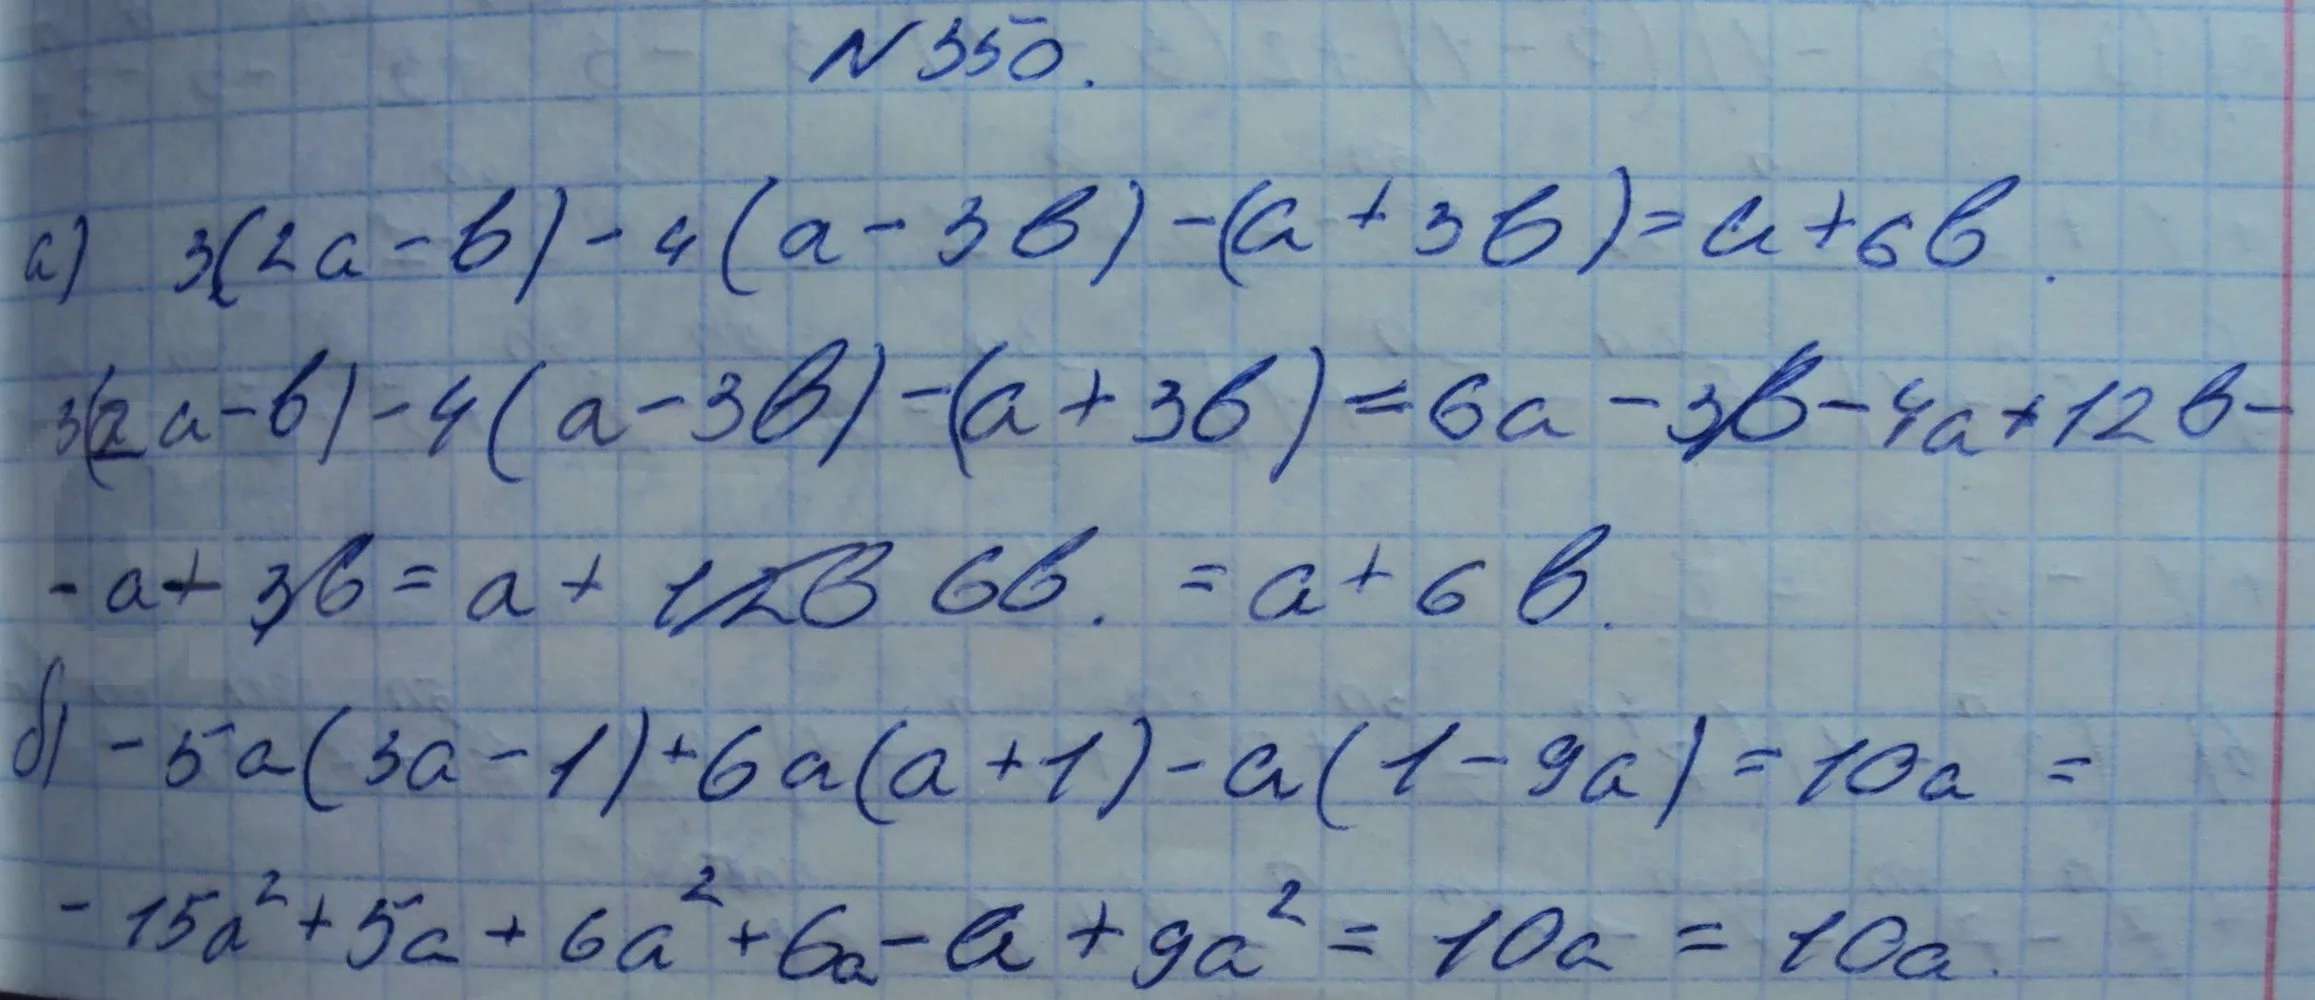 N 350.
а) 3(2a-b)-4(a-3b)-(a+3b)=a+6b.
3(2a-b)-4(a-3b)-(a+3b)=6a-3b-4a+12b-
-a+3b=a+12b 6b.=a+6b.
б) -5a(3a-1)+6a(a+1)-a(1-9a)=10a=
-15a²+5a+6a²+6a-a+9a²=10a=10a.